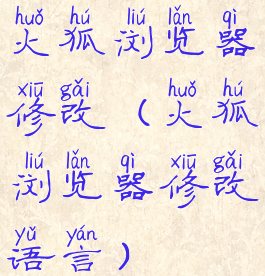 huǒ hú liú lǎn qì
火狐浏览器
xiū gǎi huǒ hú
修改（火狐
liú lǎn qì xiū gǎi
浏览器修改
yǔ yán
语言）